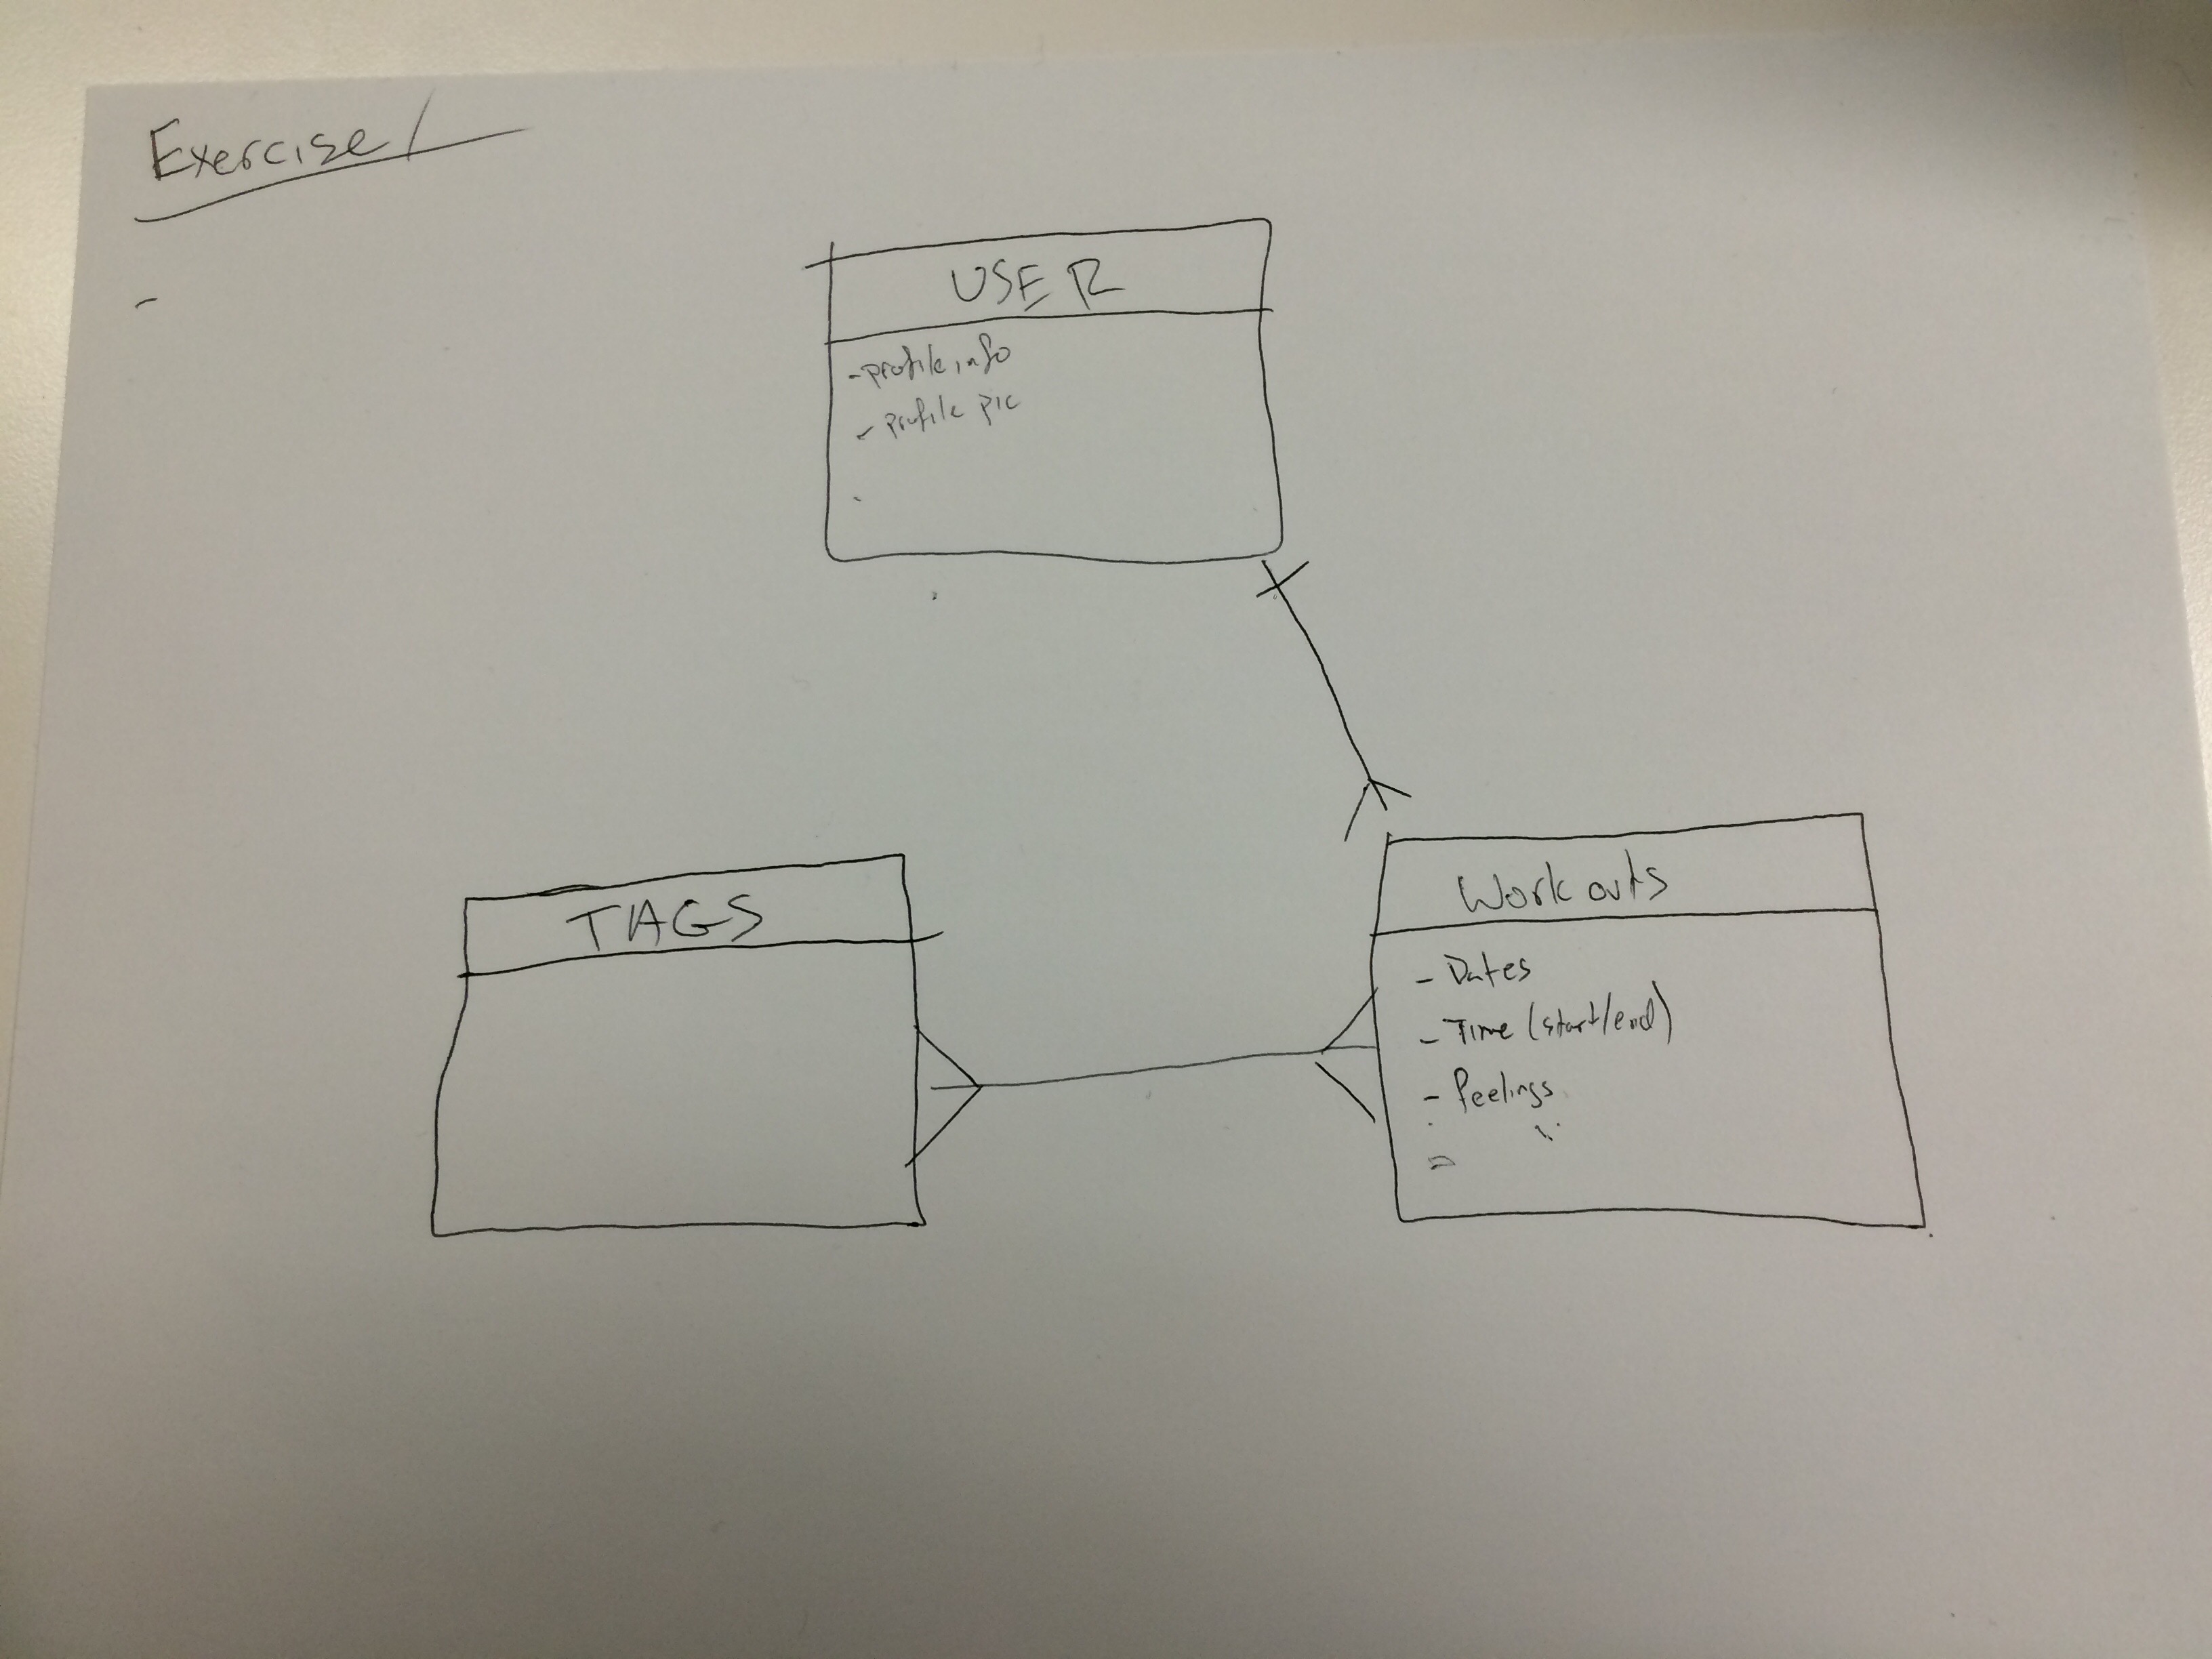 Exercise 1
-
USER
- profile info
- profile pic
TAGS
Workouts
- Dates
- Time (start/end)
- feelings